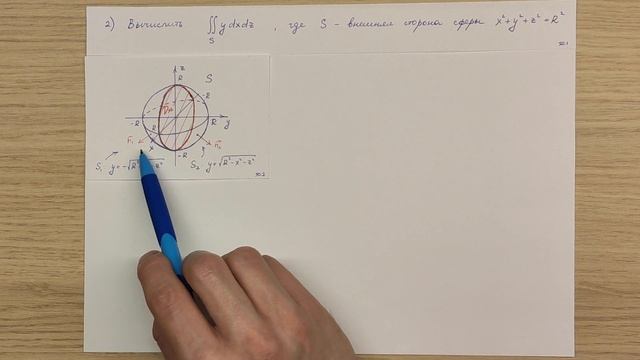 2) Вычислить ∬ y dx dz , где S – внешняя сторона сферы x²+y²+z²=R²
S
z
R S
-R
-R R y
n₁ n₂
x -R
S₁ y=-√R² z² S₂ y=√R²-x²-z²